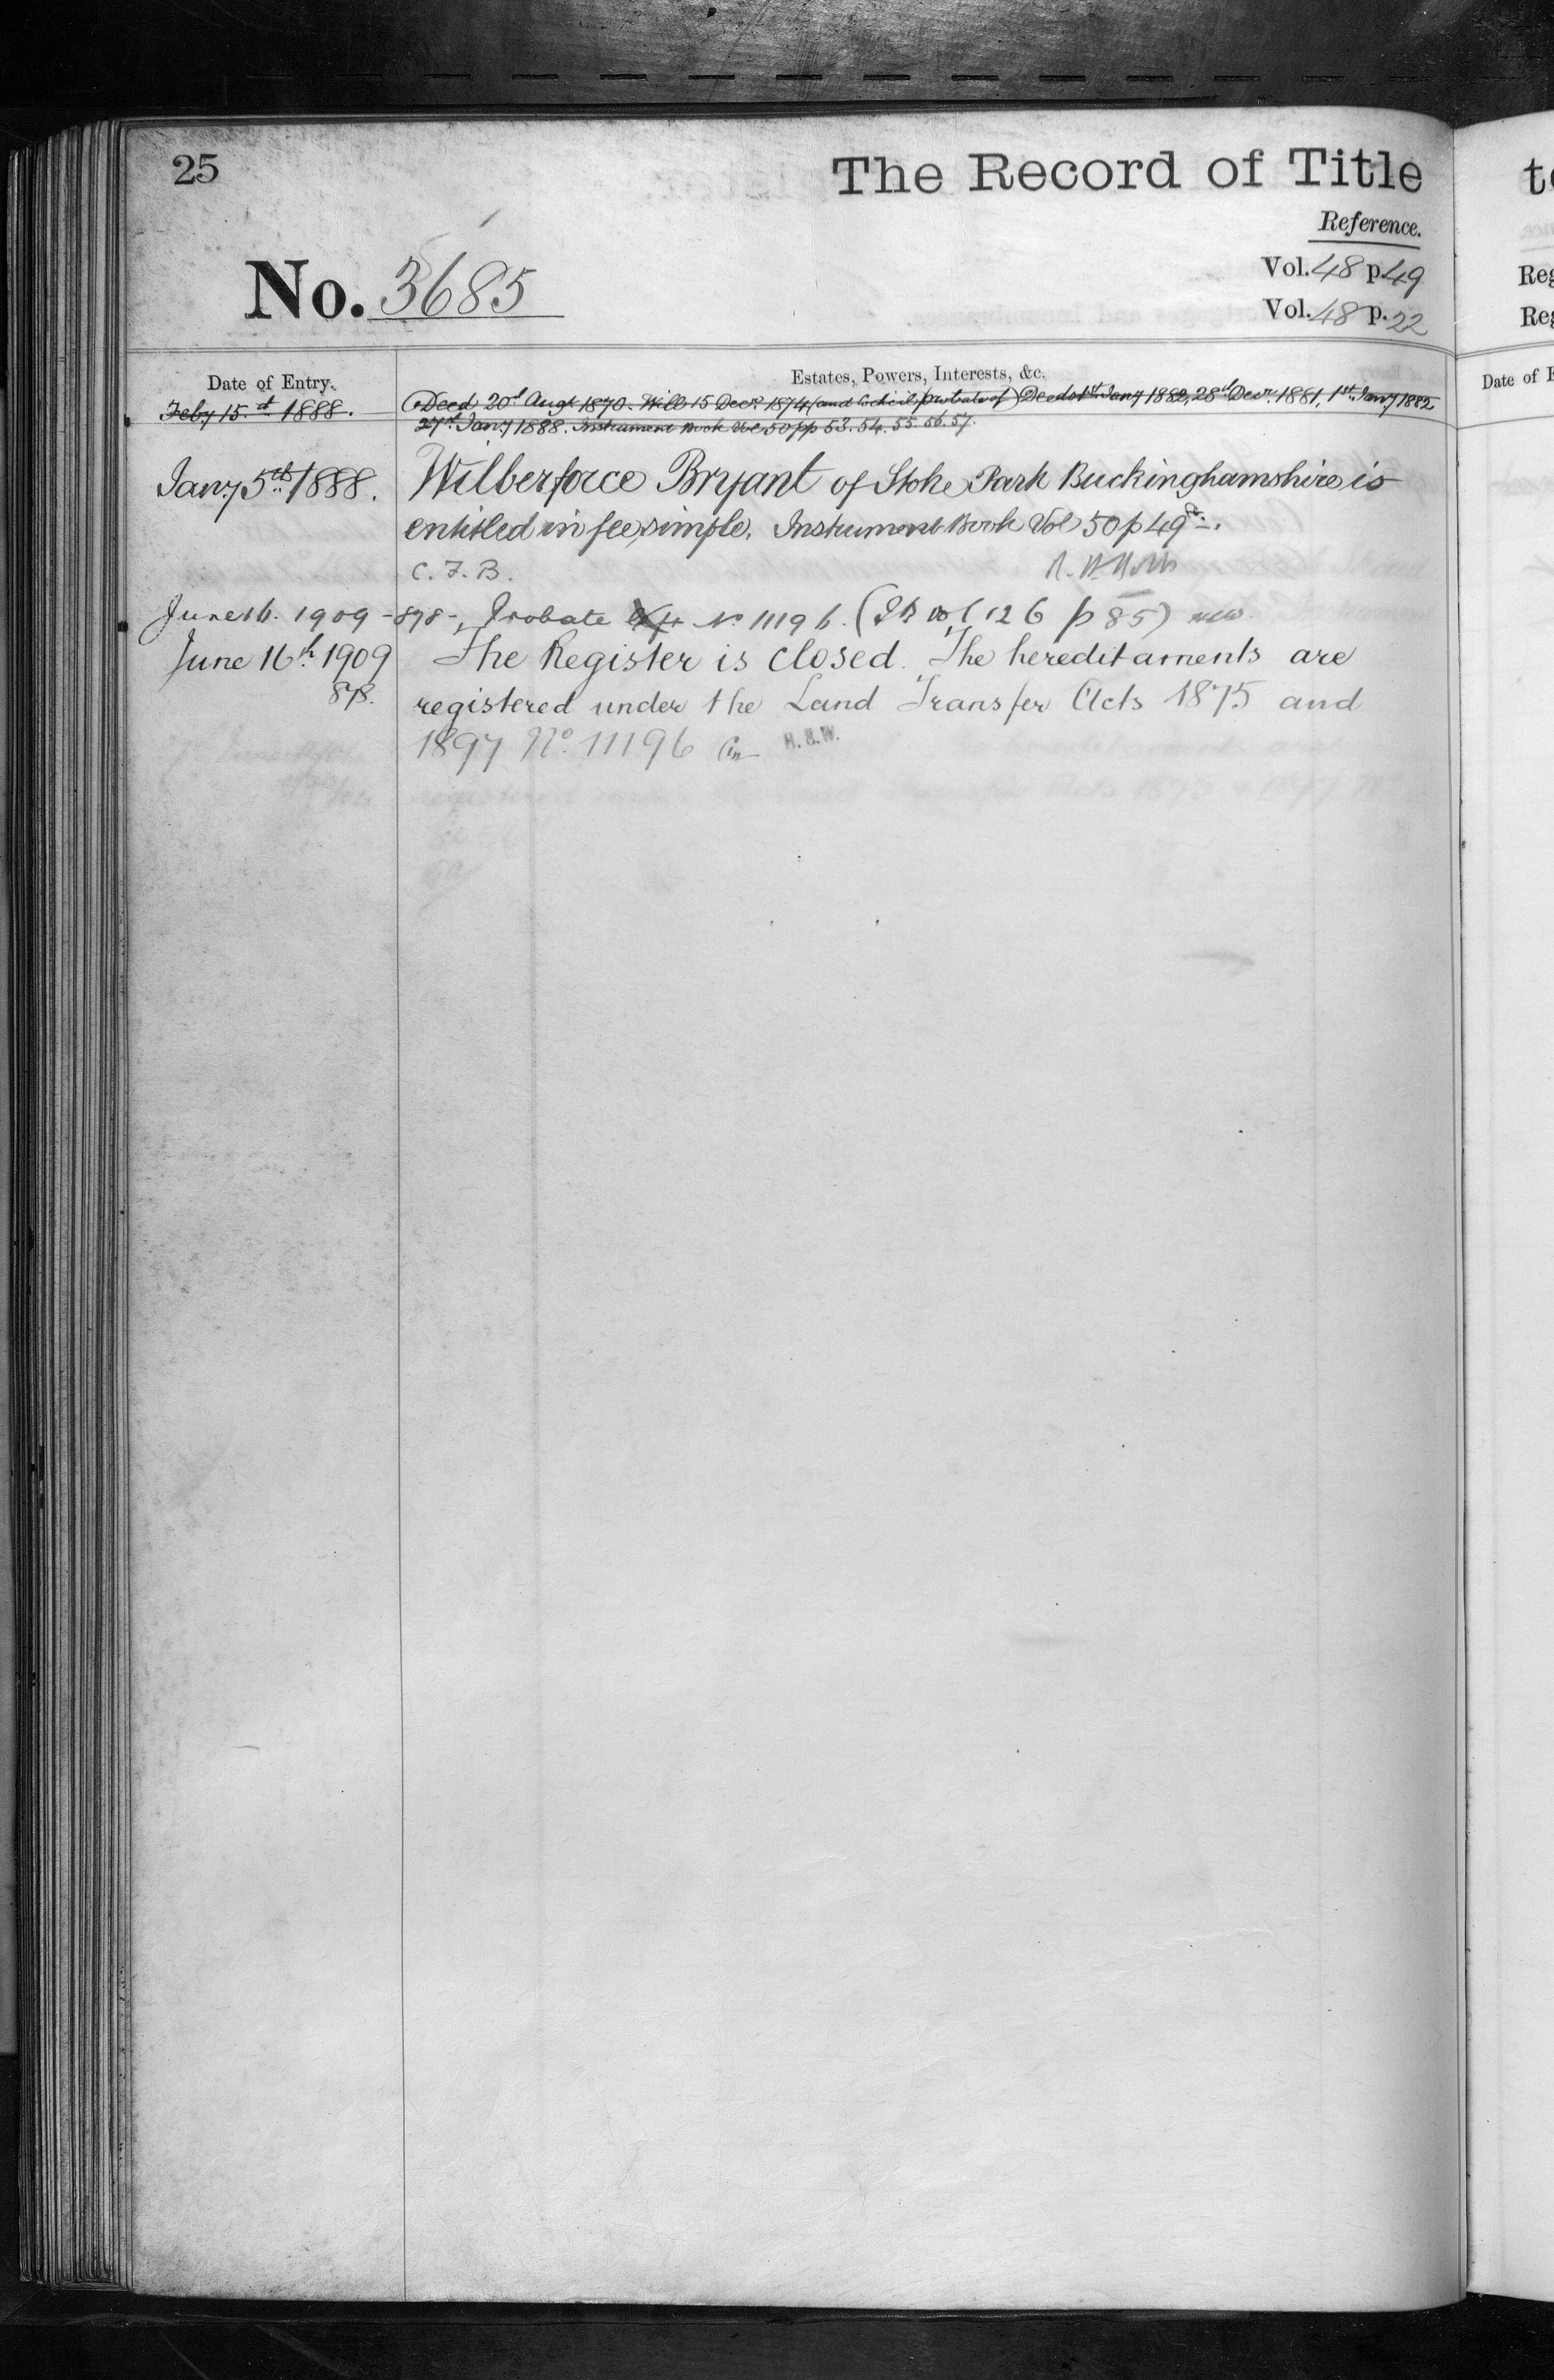 25
The Record of Title
Reference.
No. 3685
Vol. 48 p 49
Vol. 48 p. 22
Date of Entry.
Estates, Powers, Interests, &c.
Feby 15th 1888.
Deed 20th Augt 1870. Will 15 Decr 1874 (and Codicil probate of) Deeds 1st Jany 1882, 28th Decr. 1881, 1st Jany 1882
27th Jany 1888. Instrument Book Vol 50 pp 53. 54. 55. 56. 57.
Jany 5th 1888.
Wilberforce Bryant of Stoke Park Buckinghamshire is
entitled in fee simple. Instrument Book Vol 50 p 49
C. F. B.
June 16. 1909 - 898 - Probate No 11196. (I B vol 126 p 85)
June 16th 1909
898.
The Register is closed. The hereditaments are
registered under the Land Transfer Acts 1875 and
1897 No. 11196
H. S. W.
to
Reg
Reg
Date of E